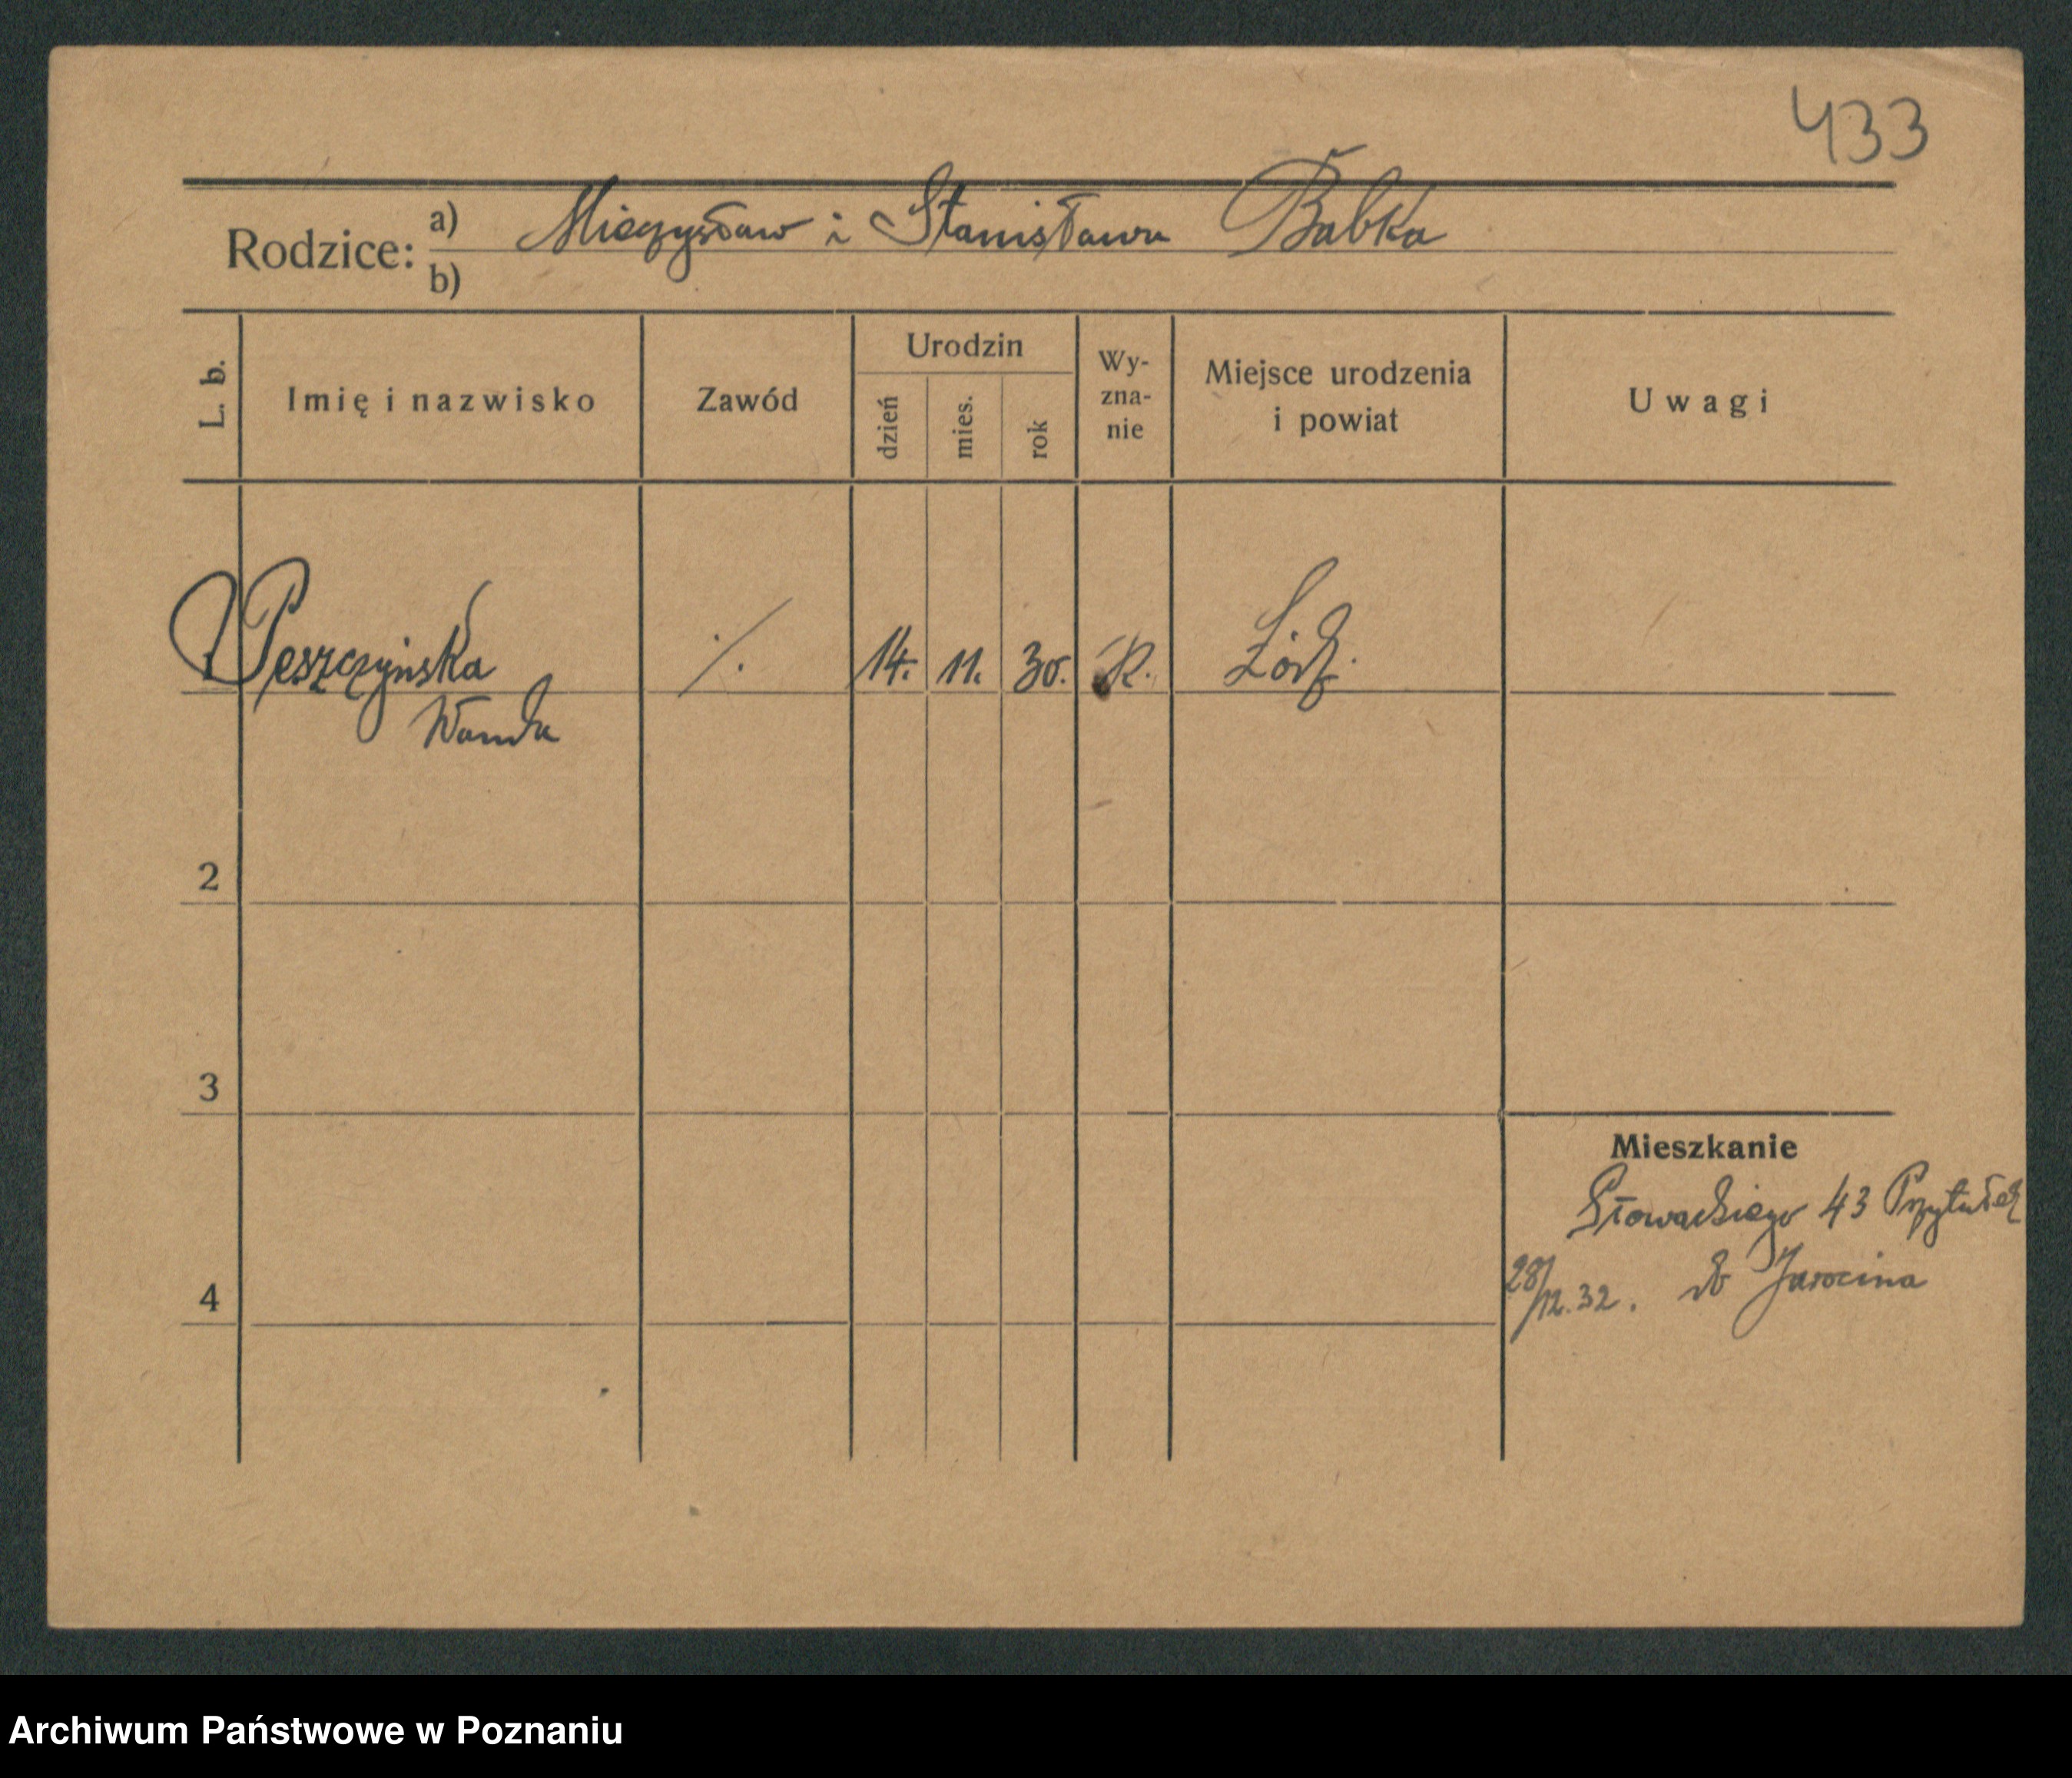 433
Rodzice: a) Mieczysław i Stanisława Babka
b)
L. b. Imię i nazwisko Zawód Urodzin dzień mies. rok Wy-zna-nie Miejsce urodzenia i powiat Uwagi
1 Peszczyńska ./. 14. 11. 30. R. Łódź.
Wanda
2
3
Mieszkanie
Słowackiego 43 Przytułek
28/12.32. do Jarocina
4
Archiwum Państwowe w Poznaniu